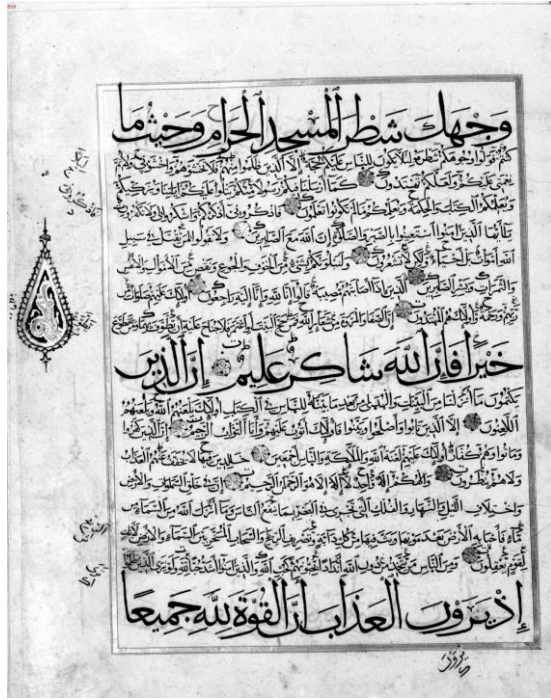 وَجْهَكَ شَطْرَ الْمَسْجِدِ الْحَرَامِ وَحَيْثُ مَا
كنتم فولوا وجوهكم شطره لئلا يكون للناس عليكم حجة إلا الذين ظلموا منهم فلا تخشوهم واخشوني ولأتم
نعمتي عليكم ولعلكم تهتدون كما أرسلنا فيكم رسولا منكم يتلوا عليكم آياتنا ويزكيكم
ويعلمكم الكتاب والحكمة ويعلمكم ما لم تكونوا تعلمون فاذكروني أذكركم واشكروا لي ولا تكفرون
يا أيها الذين آمنوا استعينوا بالصبر والصلاة إن الله مع الصابرين ولا تقولوا لمن يقتل في سبيل
الله أموات بل أحياء ولكن لا تشعرون ولنبلونكم بشيء من الخوف والجوع ونقص من الأموال والأنفس
والثمرات وبشر الصابرين الذين إذا أصابتهم مصيبة قالوا إنا لله وإنا إليه راجعون أولئك عليهم صلوات من
ربهم ورحمة وأولئك هم المهتدون إن الصفا والمروة من شعائر الله فمن حج البيت أو اعتمر فلا جناح عليه أن يطوف بهما ومن تطوع
خَيْرًا فَإِنَّ اللَّهَ شَاكِرٌ عَلِيمٌ إِنَّ الَّذِينَ
يكتمون ما أنزلنا من البينات والهدى من بعد ما بيناه للناس في الكتاب أولئك يلعنهم الله ويلعنهم
اللاعنون إلا الذين تابوا وأصلحوا وبينوا فأولئك أتوب عليهم وأنا التواب الرحيم إن الذين كفروا
وماتوا وهم كفار أولئك عليهم لعنة الله والملائكة والناس أجمعين خالدين فيها لا يخفف عنهم العذاب
ولا هم ينظرون وإلهكم إله واحد لا إله إلا هو الرحمن الرحيم إن في خلق السموات والأرض
واختلاف الليل والنهار والفلك التي تجري في البحر بما ينفع الناس وما أنزل الله من السماء من
ماء فأحيا به الأرض بعد موتها وبث فيها من كل دابة وتصريف الرياح والسحاب المسخر بين السماء والأرض لآيات
لقوم يعقلون ومن الناس من يتخذ من دون الله أندادا يحبونهم كحب الله والذين آمنوا أشد حبا لله ولو يرى الذين ظلموا
إِذْ يَرَوْنَ الْعَذَابَ أَنَّ الْقُوَّةَ لِلَّهِ جَمِيعًا